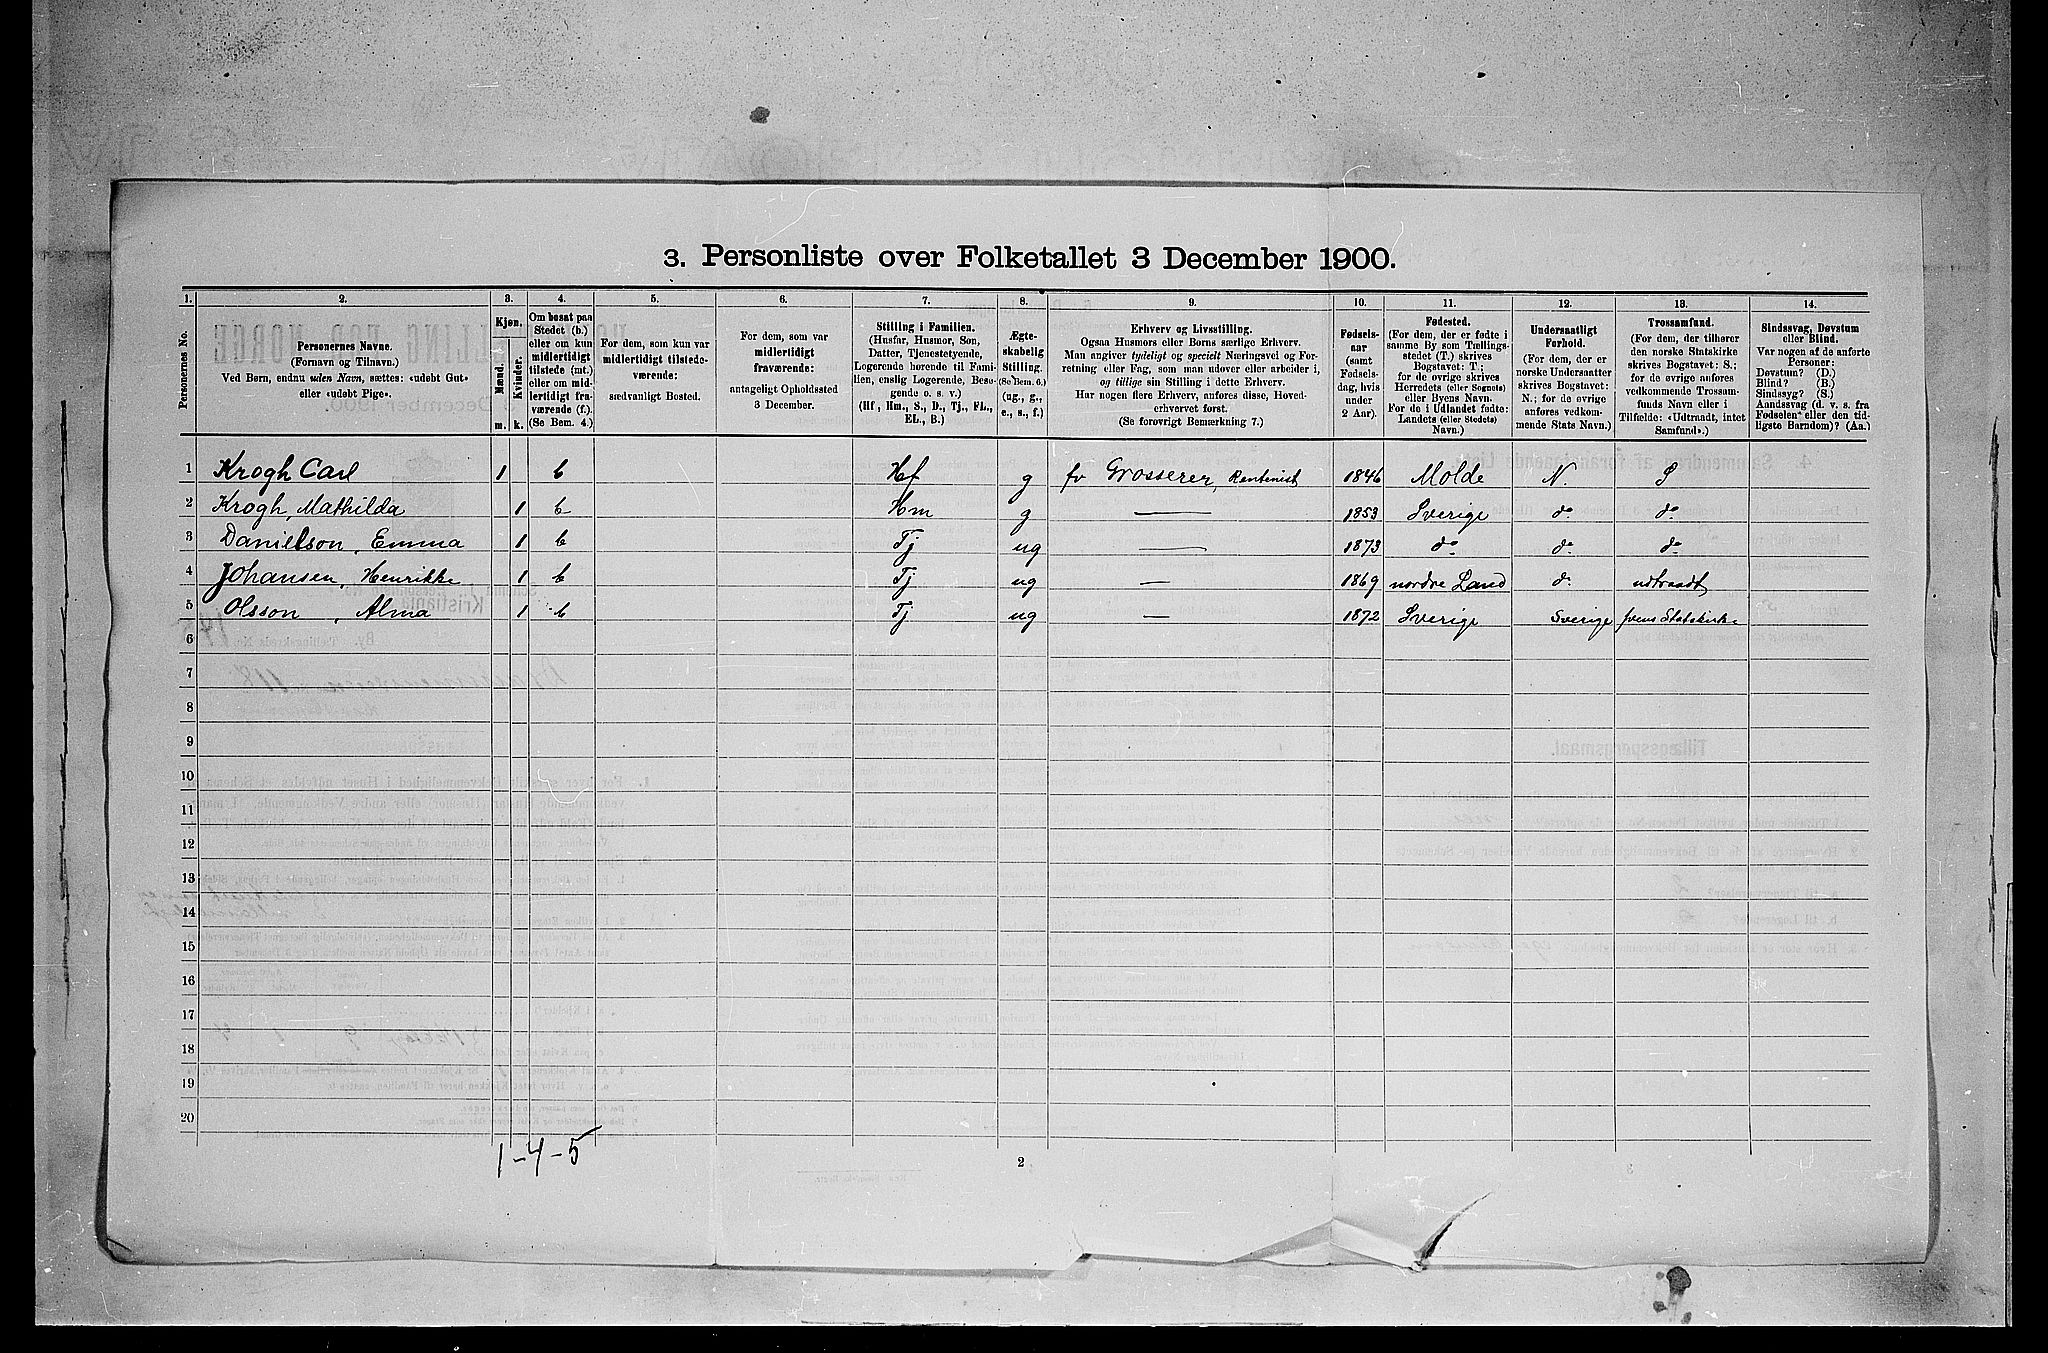 3. Personliste over Folketallet 3 December 1900.
1. 2. 3. 4. 5. 6. 7. 8. 9. 10. 11. 12. 13. 14.
Personernes No.
Personernes Navne.
(Fornavn og Tilnavn.)
Ved Børn, endnu uden Navn, sættes: «udøbt Gut»
eller «udøbt Pige».
Kjøn.
Mænd.
Kvinder.
m. k.
Om bosat paa
Stedet (b.)
eller om kun
midlertidigt
tilstede (mt.)
eller om mid-
lertidigt fra-
værende (f.).
(Se Bem. 4.)
For dem, som kun var
midlertidigt tilstede-
værende:
sædvanligt Bosted.
For dem, som var
midlertidigt
fraværende:
antageligt Opholdssted
3 December.
Stilling i Familien.
(Husfar, Husmor, Søn,
Datter, Tjenestetyende,
Logerende hørende til Fami-
lien, enslig Logerende, Besø-
gende o. s. v.)
(Hf, Hm., S., D., Tj., FL.,
EL., B.)
Ægte-
skabelig
Stilling.
(Se Bem. 6.)
(ug., g.,
e., s., f.)
Erhverv og Livsstilling.
Ogsaa Husmors eller Børns særlige Erhverv.
Man angiver tydeligt og specielt Næringsvei og For-
retning eller Fag, som man udøver eller arbeider i,
og tillige sin Stilling i dette Erhverv.
Har nogen flere Erhverv, anføres disse, Hoved-
erhvervet først.
(Se forøvrigt Bemærkning 7.)
Fødsels-
aar
(samt
Fødsels-
dag, hvis
under
2 Aar).
Fødested.
(For dem, der er fødte i
samme By som Tællings-
stedet (T.) skrives
Bogstavet: T.;
for de øvrige skrives
Herredets (eller Sognets)
eller Byens Navn.
For de i Udlandet fødte:
Landets (eller Stedets)
Navn.)
Undersaatligt
Forhold.
(For dem, der er
norske Undersaatter
skrives Bogstavet:
N.; for de øvrige
anføres vedkom-
mende Stats Navn.)
Trossamfund.
(For dem, der tilhører
den norske Statskirke
skrives Bogstavet: S.;
for de øvrige anføres
vedkommende Trossam-
funds Navn eller i
Tilfælde: «Udtraadt, intet
Samfund».)
Sindssvag, Døvstum
eller Blind.
Var nogen af de anførte
Personer:
Døvstum? (D.)
Blind? (B.)
Sindssyg? (S.)
Aandssvag (d. v. s. fra
Fødselen eller den tid-
ligste Barndom)? (Aa.)
1 Krogh Carl 1 b Hf g fv Grosserer, Rentenist 1846 Molde N. S
2 Krogh, Mathilda 1 b Hm g — 1853 Sverige do do
3 Danielson, Emma 1 b Tj ug — 1873 do do do
4 Johansen, Henrikke 1 b Tj ug — 1869 nordre Land do udtraadt
5 Olsson, Alma 1 b Tj ug — 1872 Sverige Sverige Statskirke
6
7
8
9
10
11
12
13
14
15
16
17
18
19
20
1-4-5
2